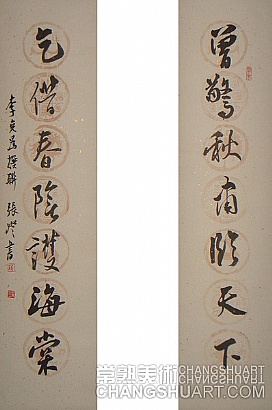 曾驚秋肅臨天下
乞借春陰護海棠
撰聯 張書
常熟美術 CHANGSHUART
CHANGSHUART.COM